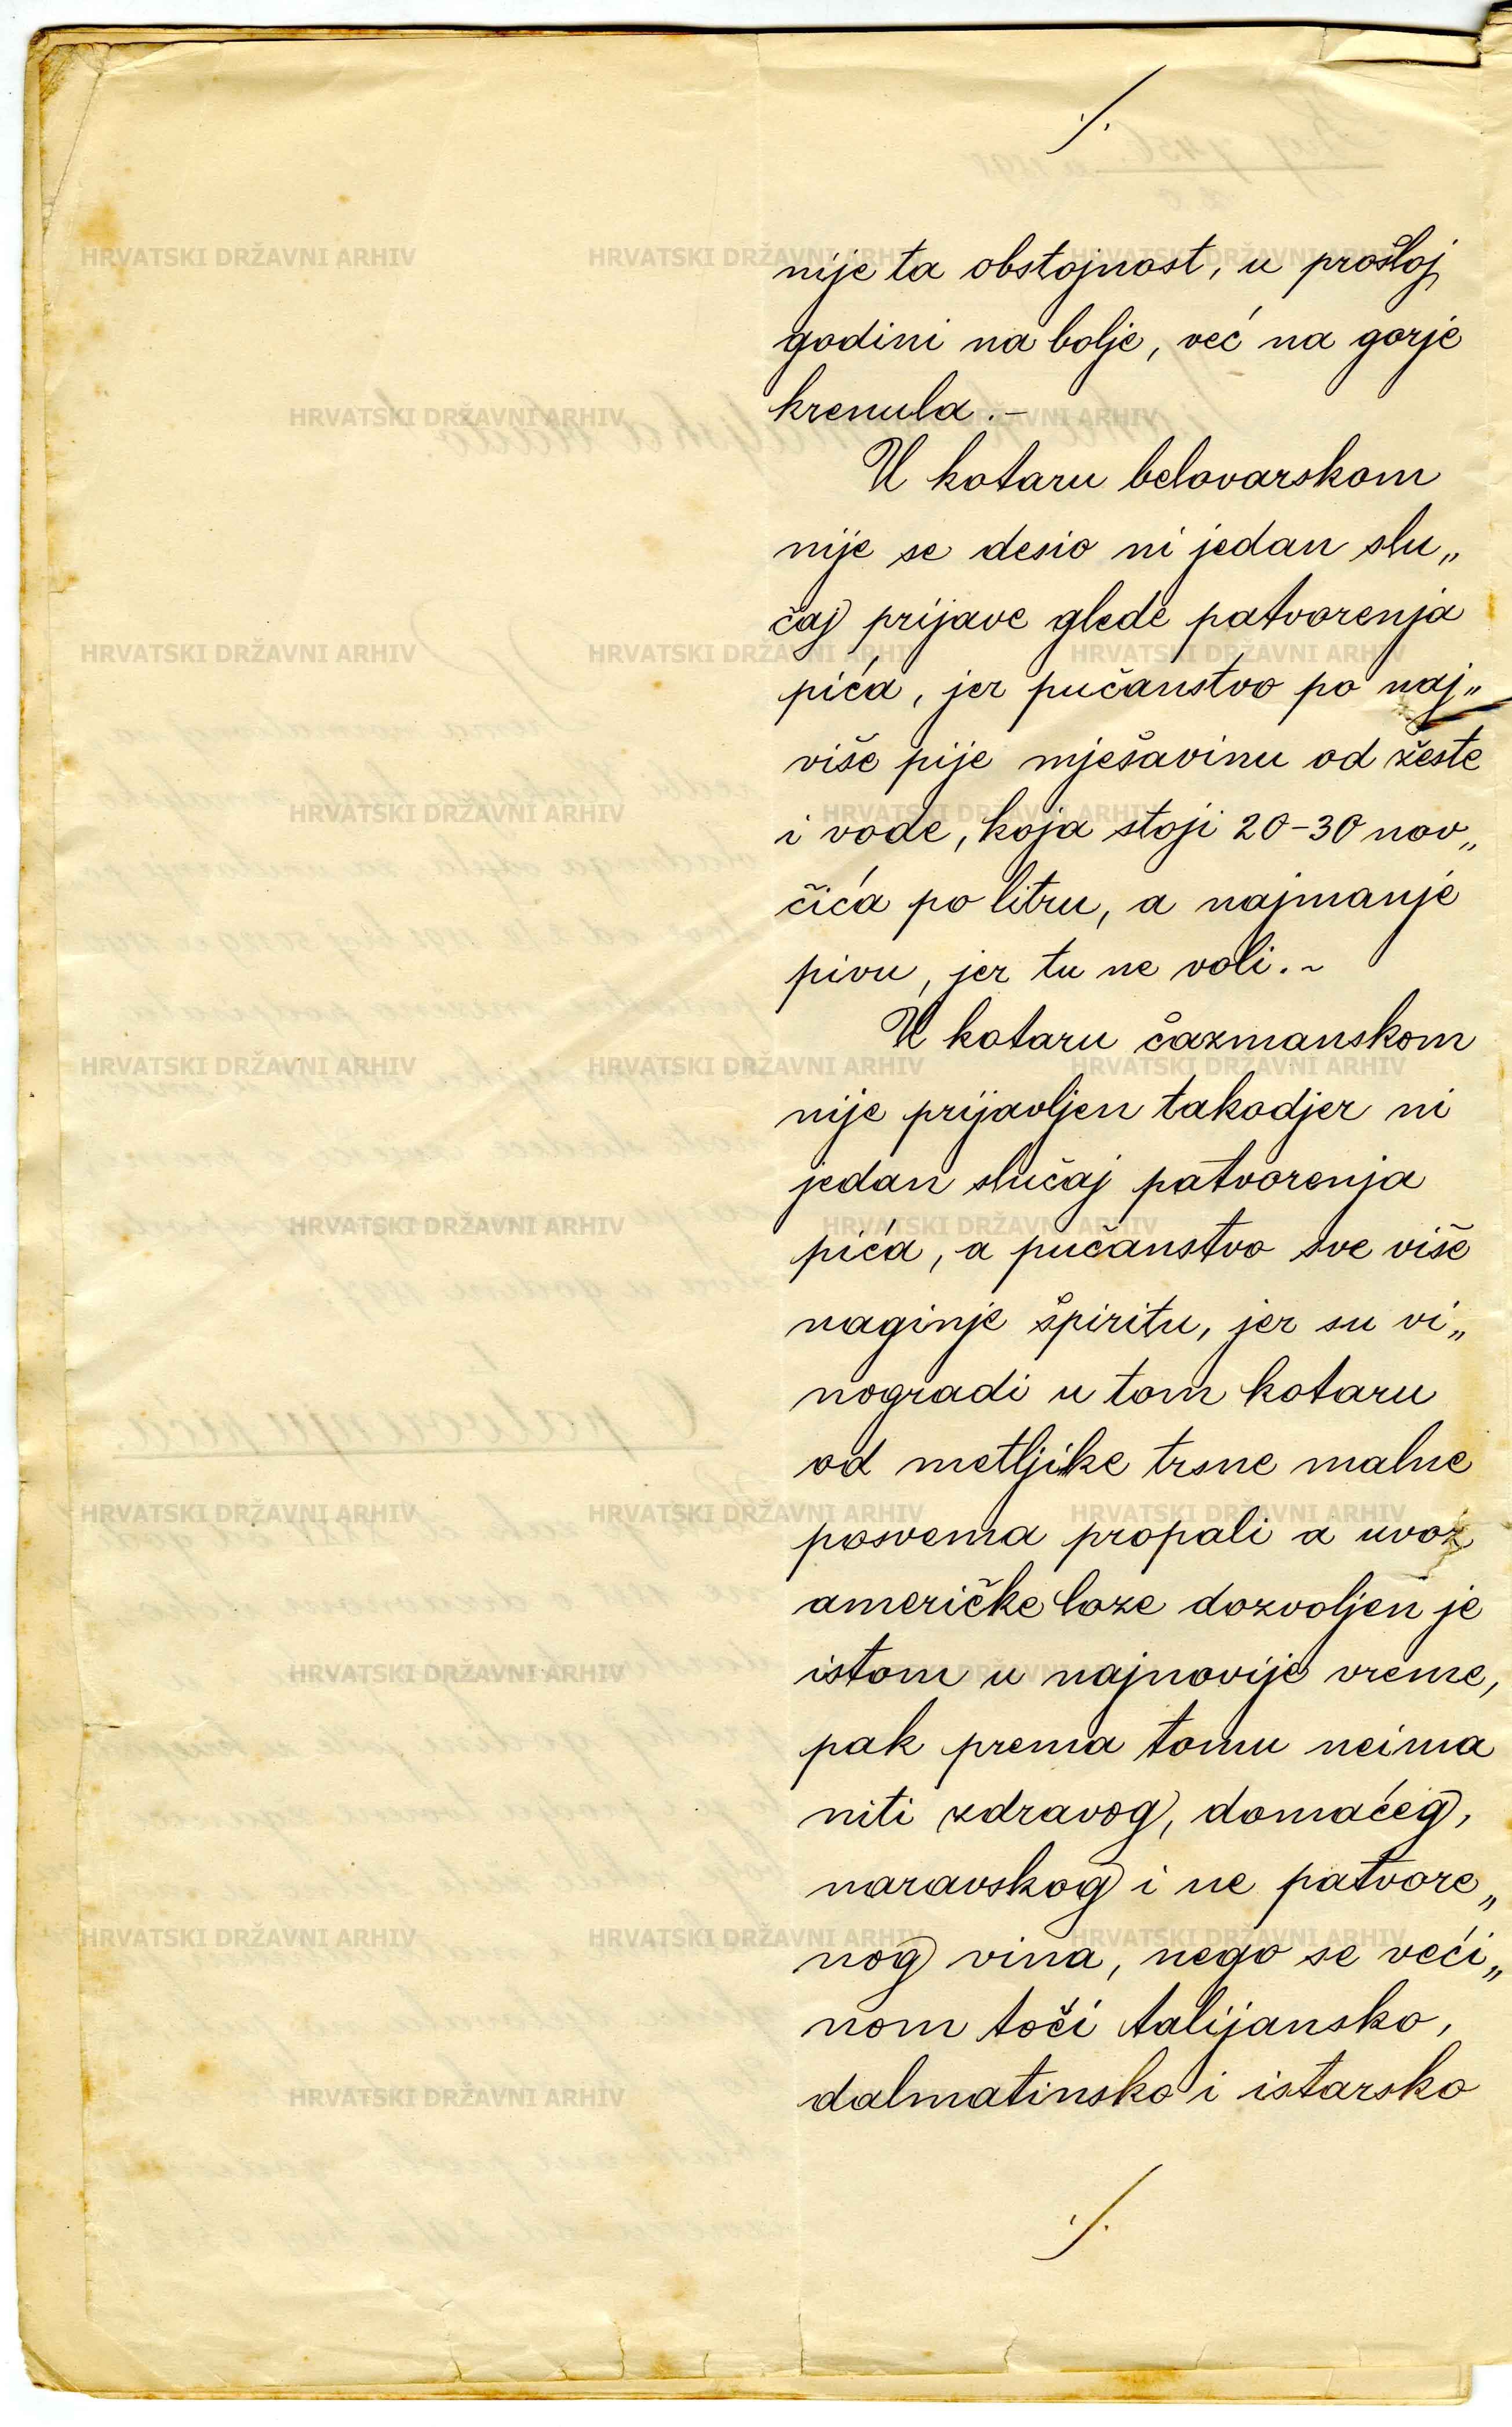 ./.
nije ta obstojnost, u prošloj
godini na bolje, već na gorje
krenula.–
U kotaru belovarskom
nije se desio ni jedan slu„
čaj prijave glede patvorenja
pića, jer pučanstvo po naj„
više pije mješavinu od žeste
i vode, koja stoji 20–30 nov„
čića po litru, a najmanje
pivu, jer tu ne voli.~
U kotaru čazmanskom
nije prijavljen takodjer ni
jedan slučaj patvorenja
pića, a pučanstvo sve više
naginje špiritu, jer su vi„
nogradi u tom kotaru
od metljike trsne malne
posvema propali a uvoz
američke loze dozvoljen je
istom u najnovije vreme,
pak prema tomu neima
niti zdravog, domaćeg,
naravskog i ne patvore„
nog vina, nego se veći„
nom toči talijansko,
dalmatinsko i istarsko
./.
HRVATSKI DRŽAVNI ARHIV